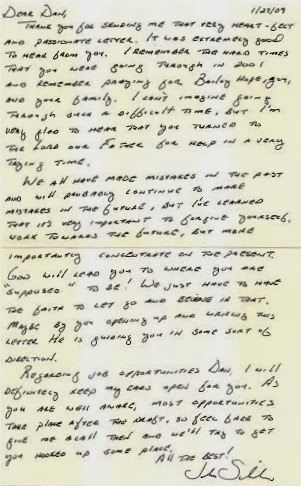 Dear Dan, 1/27/09
Thank you for sending me that very heart-felt
and passionate letter. It was extremely good
to hear from you. I remember the hard times
that you were going through in 2001
and remember praying for Bailey Hope, you,
and your family. I can't imagine going
through such a difficult time, but I'm
very glad to hear that you turned to
the Lord our Father for help in a very
trying time.
We all have made mistakes in the past
and will probably continue to make
mistakes in the future, but I've learned
that it's very important to forgive yourself,
work towards the future, but more
importantly concentrate on the present.
God will lead you to where you are
"supposed" to be! We just have to have
the faith to let go and believe in that.
Maybe by you opening up and writing this
letter He is guiding you in some sort of
direction.
Regarding job opportunities Dan, I will
definitely keep my ears open for you. As
you are well aware, most opportunities
take place after the draft, so feel free to
give me a call then and we'll try to get
you hooked up some place.
All the best!